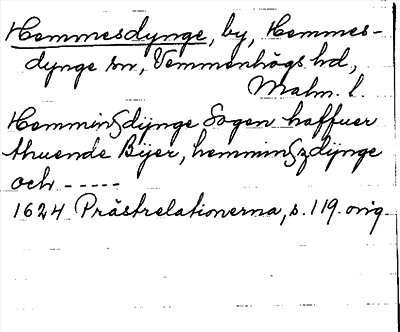 Hemmesdynge, by, Hemmes-
dynge sn, Vemmenhögs hd,
Malm. l.
Hemmingdijnge Sogen haffuer
thuende Bijer, hemmingzdijnge
och -----
1624 Prästrelationerna, s. 119. orig.